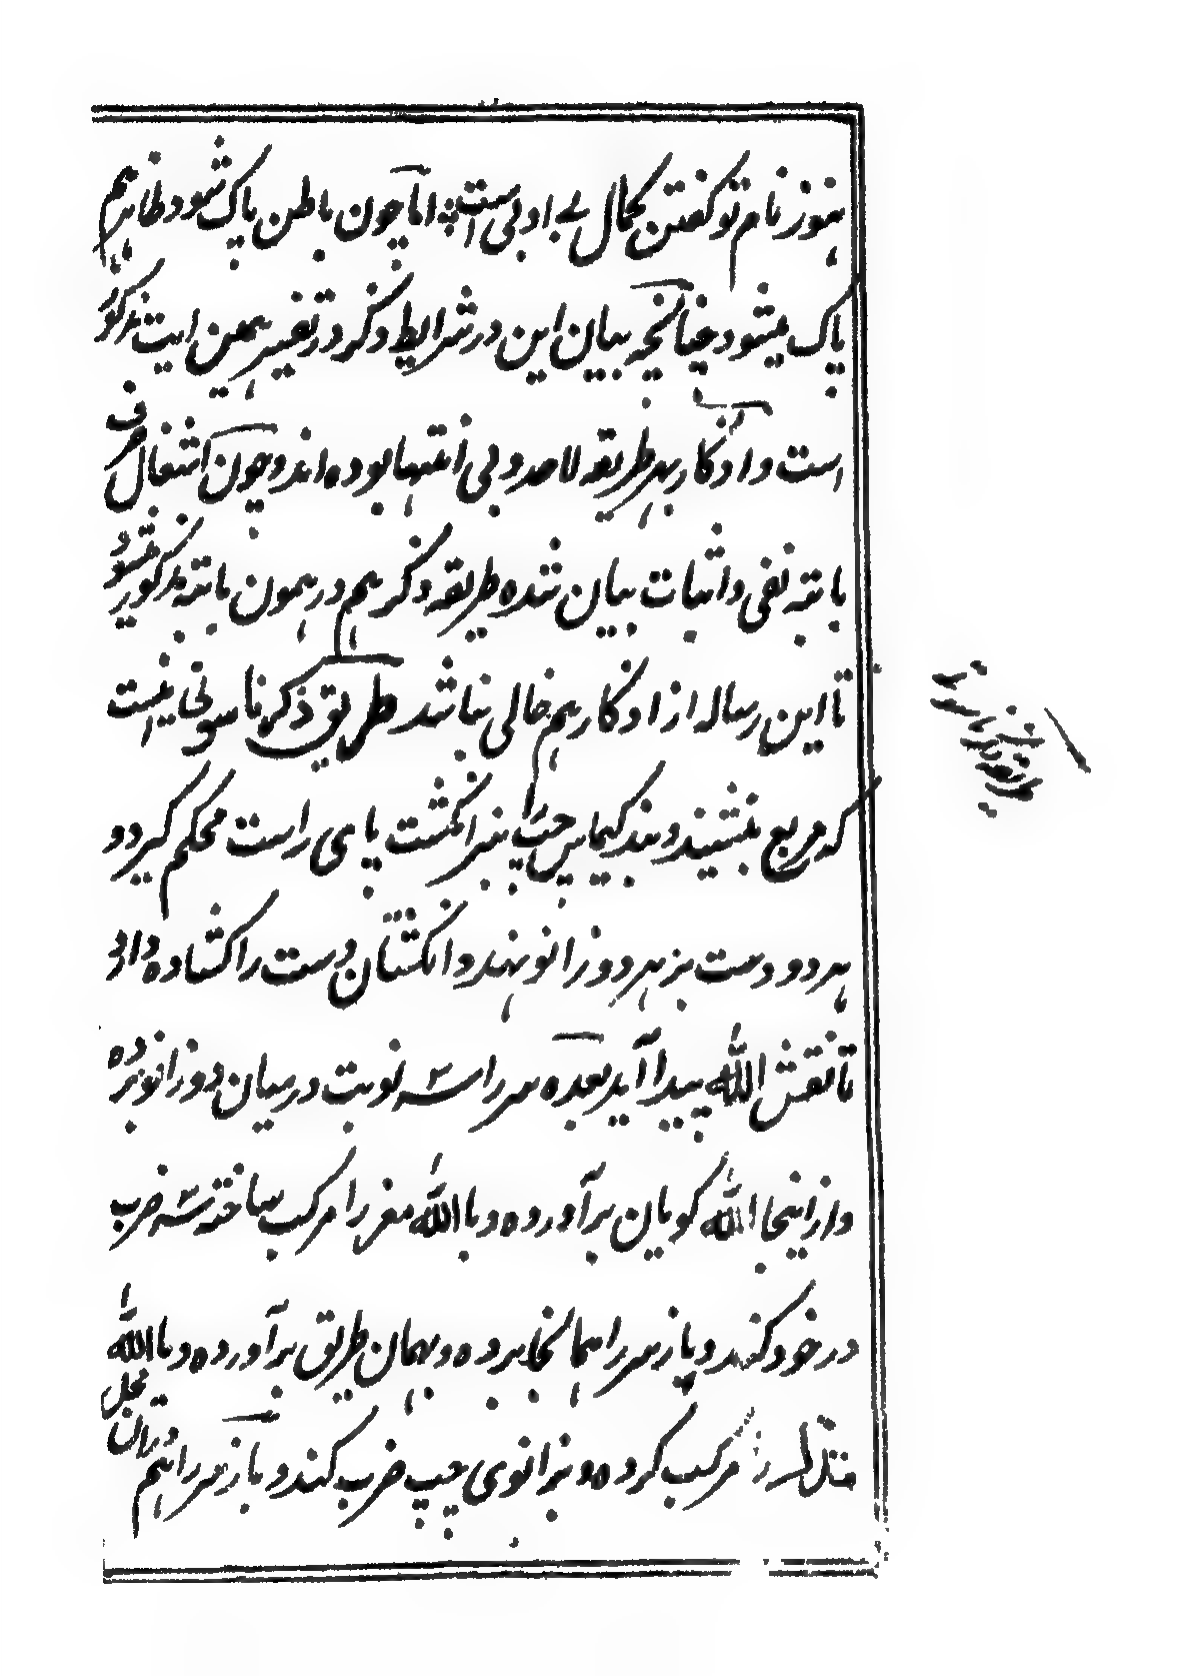 هنوز نام تو گفتن کمال بے ادبی است اما چون باطن پاک شود ظاهر هم
پاک میشود چنانچه بیان این در شرایط ذکر در تفسیر همین ایت مذکور
است و اذکار هر طریقه لاحد و بی انتها بوده اند و چون اشغال حرف
با نفی و اثبات بیان شده طریقه ذکر هم در همون مذکور میشود
تا این رساله از اذکار هم خالی نباشد طریق ذکر ناسوتی اینست
که مربع بنشیند و بند کیماس چپ بنر انگشت پای راست محکم گیرد و
هر دو دست بر هر دو زانو نهند و انگشتان دست را کشاده دارد
تا نقش الله پیدا آید بعده سر را سه نوبت در میان دو زانو برده
و از اینجا الله گویان برآورده و با الله مغز را مرکب ساخته سه ضرب
در خود کنند و باز سر را همانجا برده و بهمان طریق برآورده و با الله
را مرکب کرده و بزانوی چپ ضرب کند و باز سر را هم دران محل